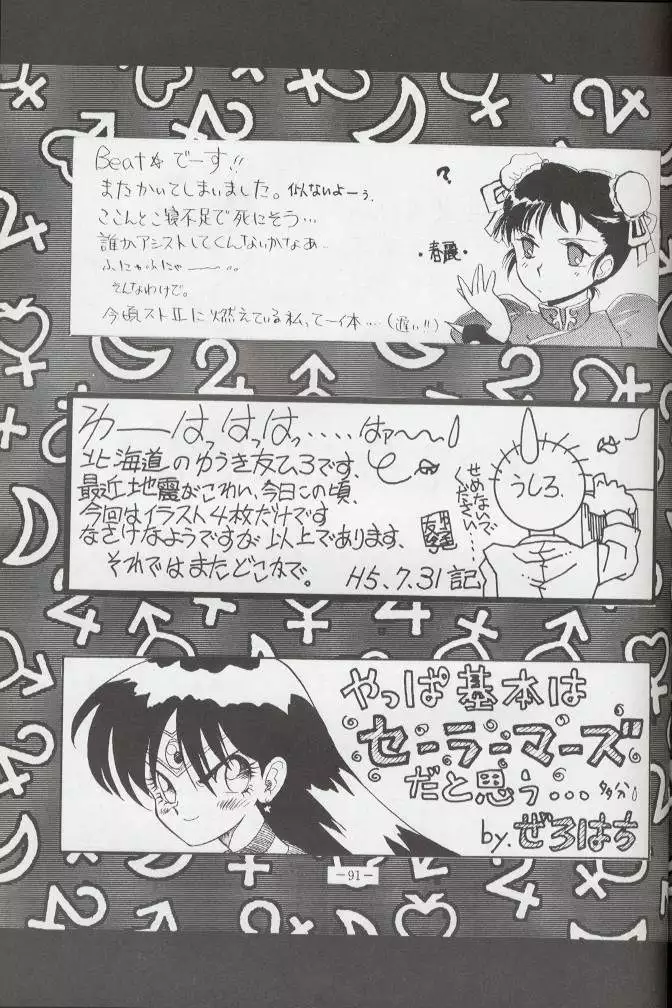 Beat☆でーす!!
またかいてしまいました。似ないよーぅ。
ここんとこ寝不足で死にそう…
誰かアシストしてくんないかなぁ…
ふにゃふにゃ〜
そんなわけで。
今頃ストIIに燃えている私って一体…(遅い!!)
?
・春麗・
わーはっはっはっ……はァ〜〜
北海道のゆうき友ひろです、
最近地震がこわい、今日この頃、
今回はイラスト4枚だけです
なさけなようですが以上であります、
それではまたどこかで。
H5.7.31記
せめないで
ください……
うしろ.
やっぱ基本は
セーラーマーズ
だと思う...多分
by.ぜろはち
-91-